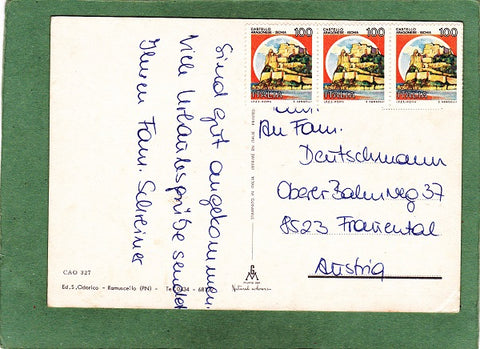 Sind gut angekommen.
Viele Urlaubsgrüße sendet
Ihnen Fam. Schreiner
CASTELLO
ARAGONESE · ISCHIA
100
ITALIA
CASTELLO
ARAGONESE · ISCHIA
100
ITALIA
CASTELLO
ARAGONESE · ISCHIA
100
ITALIA
An Fam.
Deutschmann
Oberer Bahnweg 37
8523 Frauental
Austria
CAO 327
Ed. S. Odorico - Ramuscello (PN) - Tel. 0434 - 68